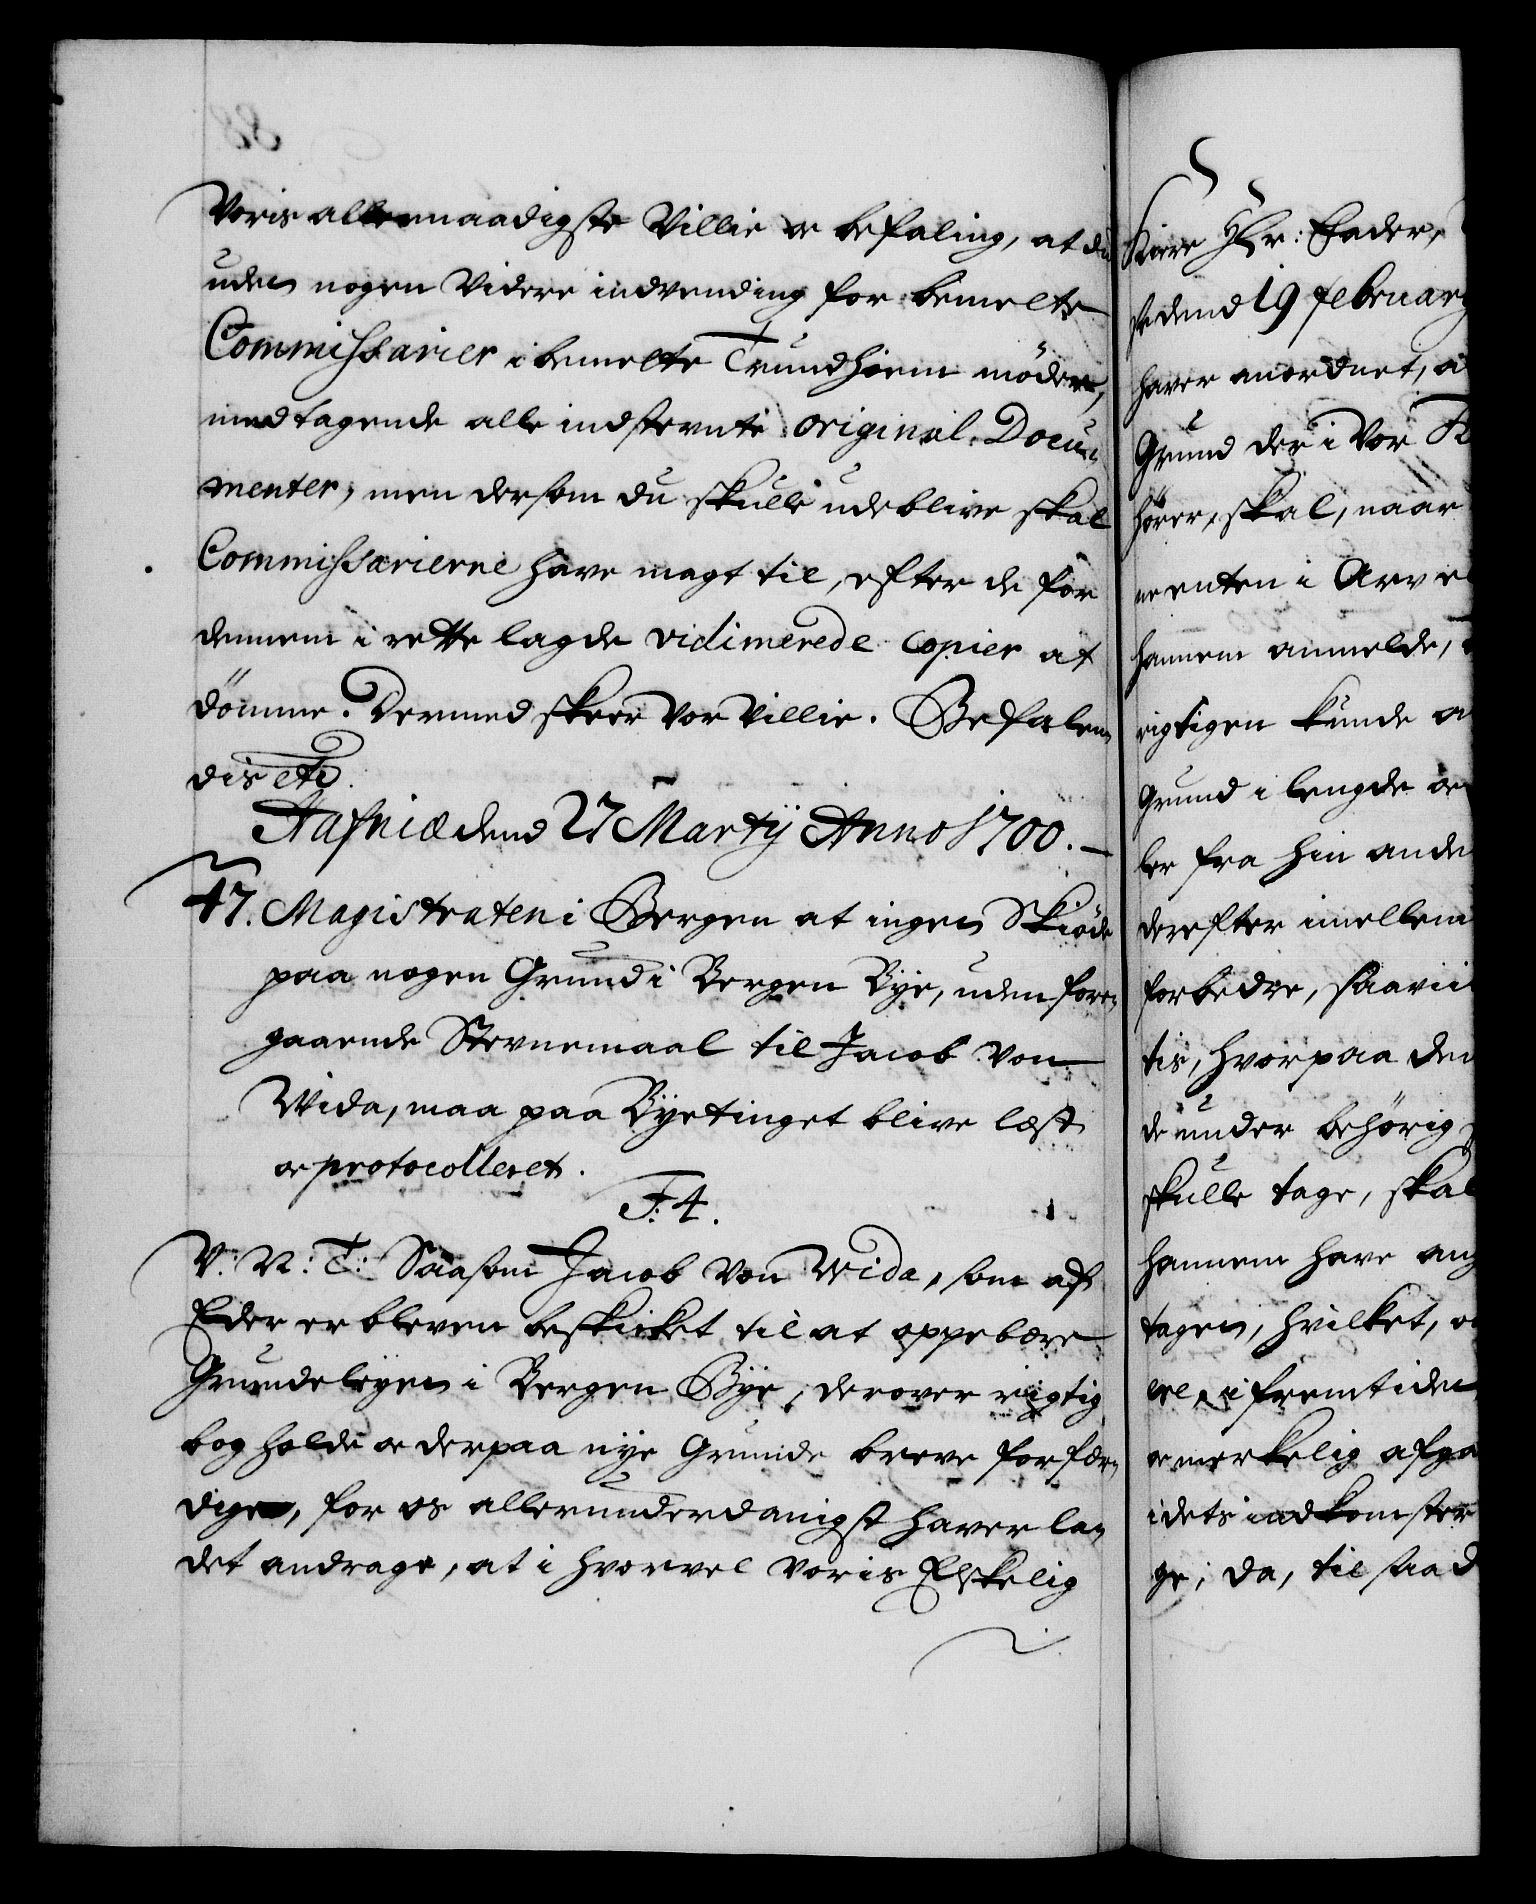 Voris allernaadigste Villie oc befaling, at du
uden nogen Videre indvending for bemelte
Commissarier i bemelte Trundhiem möder,
medtagende alle indstevnte original Docu-
menter, men dersom du skulle udeblive skal
Commissarierne have magt til, efter de for
dennem i rette lagde vidimerede copier at
dömme. Dermed skeer Vor Villie. Befalen-
dis etc.
Hafniæ dend 27 Martij Anno 1700.
47. Magistraten i Bergen at ingen Skiöde
paa nogen Grund i Bergen Bye, uden fore-
gaaende Stevnemaal til Jacob Von
Wida, maa paa Byetinget blive læst
oc protocolleret.
F: 4.
V: N: T: Saasom Jacob Von Wida, som af
Eder er bleven beskicket til at oppebære
Grundeleyen i Bergen Bye, derover rigtig
bog holde oc derpaa nye Grunde breve forfær-
dige, for os allerunderdanigst haver la-
det andrage, at i hvorvel Voris Elskelig
Kiere Hr: Fader,
dend 19 februarij
haver anordnet, a
Grund der i Vor K
hörer, skal, naar
enten i Arv e
hannem anmelde,
rigtigen kunde a
Grund i lengde oc
ler fra hin ande
derefter imellem
forbedre, saavii
tis, hvorpaa den
de under behörig
skulle tage, skal
hannem have ang
tagen, hvilket, o
vel, i fremtiden
oc merkelig afga
idets indkomster
ge; da, til saad